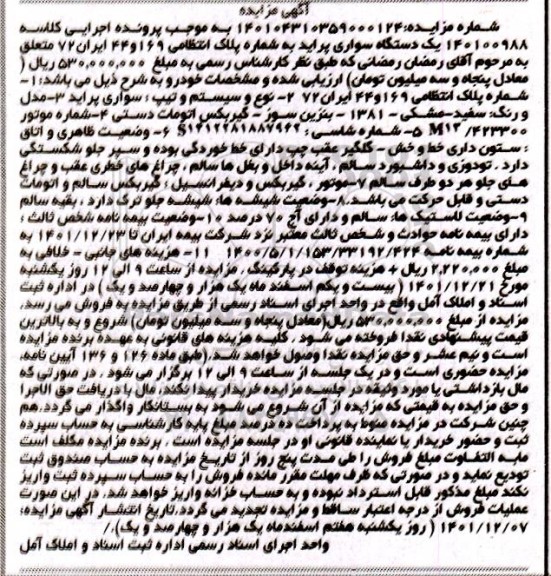 آگهی مزایده
شماره مزایده:۱۴۰۱۰۴۳۱۰۳۵۹۰۰۰۱۲۴ به موجب پرونده اجرایی کلاسه
۱۴۰۱۰۰۹۸۸ یک دستگاه سواری پراید به شماره پلاک انتظامی ۱۶۹و۴۴ ایران۷۲ متعلق
به مرحوم آقای رمضان رمضانی که طبق نظر کارشناس رسمی به مبلغ ۵۳۰,۰۰۰,۰۰۰ ریال (
معادل پنجاه و سه میلیون تومان) ارزیابی شده و مشخصات خودرو به شرح ذیل می باشد:۱-
شماره پلاک انتظامی ۱۶۹و۴۴ ایران۷۲ ۲- نوع و سیستم و تیپ : سواری پراید ۳-مدل
و رنگ: سفید-مشکی - ۱۳۸۱ - بنزین سوز - گیربکس اتومات دستی ۴-شماره موتور
: M۱۳/۴۲۳۳۰۰ ۵- شماره شاسی : S۱۴۱۲۲۸۱۸۸۷۹۶۲ ۶- وضعیت ظاهری و اتاق
: ستون داری خط و خش - گلگیر عقب چپ دارای خط خوردگی بوده و سپر جلو شکستگی
دارد . تودوزی و داشبورد سالم . آینه داخل و بغل ها سالم ، چراغ های خطری عقب و چراغ
های جلو هر دو طرف سالم ۷-موتور ، گیربکس و دیفرانسیل : گیربکس سالم و اتومات
دستی و قابل حرکت می باشد.۸-وضعیت شیشه ها: شیشه جلو ترک دارد . بقیه سالم
۹-وضعیت لاستیک ها: سالم و دارای آج ۷۰ درصد ۱۰-وضعیت بیمه نامه شخص ثالث :
دارای بیمه نامه حوادث و شخص ثالث معتبر نزد شرکت بیمه ایران تا ۱۴۰۱/۱۲/۲۳ به
شماره بیمه نامه ۱۴۰۰/۵/۱/۱۵۳/۳۳۱۹۲/۴۲۴ ۱۱- هزینه های جانبی - خلافی به
مبلغ ۲,۲۲۰,۰۰۰ ریال + هزینه توقف در پارکینگ . مزایده از ساعت ۹ الی ۱۲ روز یکشنبه
مورخ ۱۴۰۱/۱۲/۲۱ ( بیست و یکم اسفند ماه یک هزار و چهارصد و یک ) در اداره ثبت
اسناد و املاک آمل واقع در واحد اجرای اسناد رسمی از طریق مزایده به فروش می رسد.
مزایده از مبلغ ۵۳۰,۰۰۰,۰۰۰ ریال(معادل پنجاه و سه میلیون تومان) شروع و به بالاترین
قیمت پیشنهادی نقدا فروخته می شود . کلیه هزینه های قانونی به عهده برنده مزایده
است و نیم عشر و حق مزایده نقدا وصول خواهد شد.(طبق ماده ۱۲۶ و ۱۳۶ آیین نامه.
مزایده حضوری است و در یک جلسه از ساعت ۹ الی ۱۲ برگزار می شود . در صورتی که
مال بازداشتی یا مورد وثیقه در جلسه مزایده خریدار پیدا نکند مال با دریافت حق الاجرا
و حق مزایده به قیمتی که مزایده از آن شروع می شود به بستانکار واگذار می گردد.هم
چنین شرکت در مزایده منوط به پرداخت ده درصد مبلغ پایه کارشناسی به حساب سپرده
ثبت و حضور خریدار یا نماینده قانونی او در جلسه مزایده است . برنده مزایده مکلف است
مابه التفاوت مبلغ فروش را طی مدت پنج روز از تاریخ مزایده به حساب صندوق ثبت
تودیع نماید و در صورتی که ظرف مهلت مقرر مانده فروش را به حساب سپرده ثبت واریز
نکند مبلغ مذکور قابل استرداد نبوده و به حساب خزانه واریز خواهد شد. در این صورت
عملیات فروش از درجه اعتبار ساقط و مزایده تجدید می گردد.تاریخ انتشار آگهی مزایده:
۱۴۰۱/۱۲/۰۷ ( روز یکشنبه هفتم اسفندماه یک هزار و چهارصد و یک)./
واحد اجرای اسناد رسمی اداره ثبت اسناد و املاک آمل